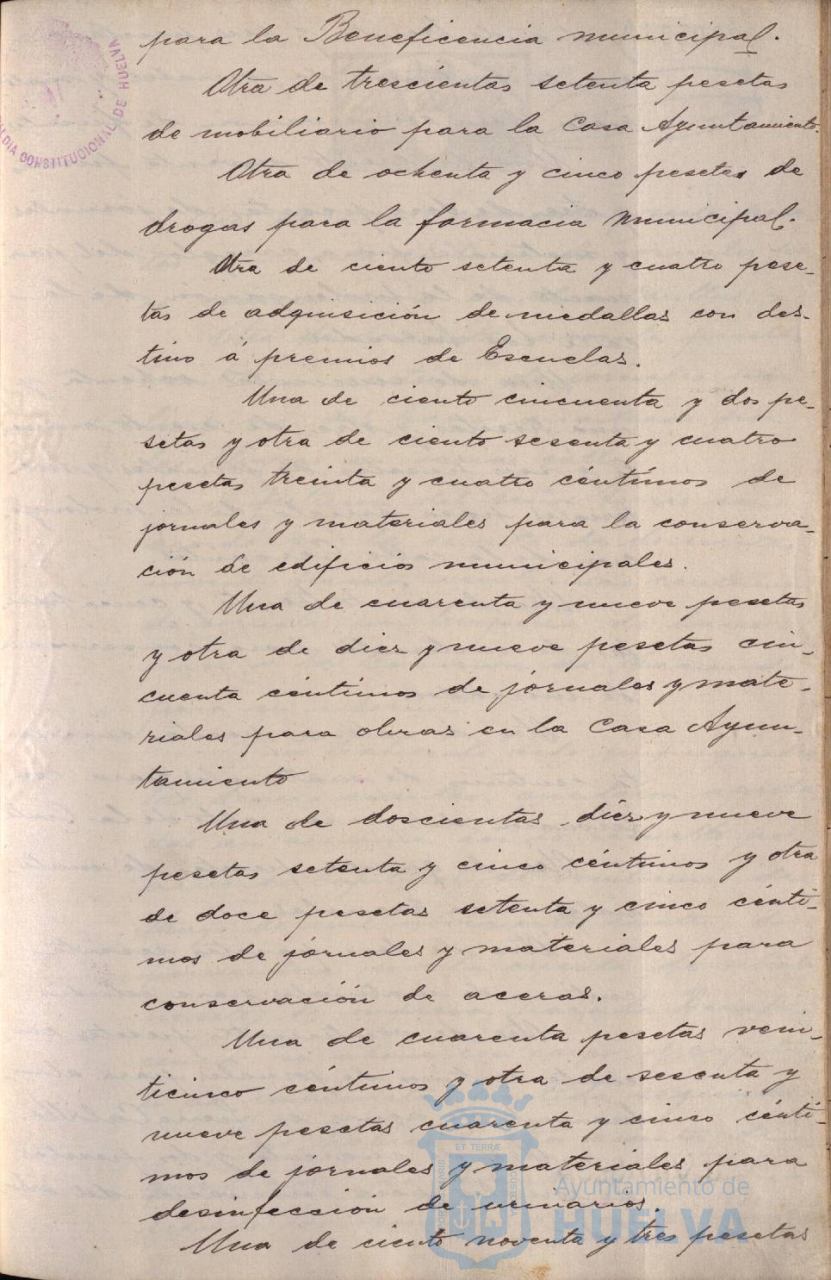 para la Beneficencia municipal.
Otra de trescientas setenta pesetas
de mobiliario para la Casa Ayuntamiento.
Otra de ochenta y cinco pesetas de
drogas para la farmacia municipal.
Otra de ciento setenta y cuatro pese-
tas de adquisición de medallas con des-
tino á premios de Escuelas.
Una de ciento cincuenta y dos pe-
setas y otra de ciento sesenta y cuatro
pesetas treinta y cuatro céntimos de
jornales y materiales para la conserva-
ción de edificios municipales.
Una de cuarenta y nueve pesetas
y otra de diez y nueve pesetas cin-
cuenta céntimos de jornales y mate-
riales para obras en la Casa Ayun-
tamiento
Una de doscientas diez y nueve
pesetas setenta y cinco céntimos y otra
de doce pesetas setenta y cinco cénti-
mos de jornales y materiales para
conservación de aceras.
Una de cuarenta pesetas vein-
ticinco céntimos y otra de sesenta y
nueve pesetas cuarenta y cinco cénti-
mos de jornales y materiales para
desinfección de urinarios.
Una de ciento noventa y tres pesetas
CONSTITUCIONAL DE HUELVA
ET TERRÆ
Ayuntamiento de
HUELVA